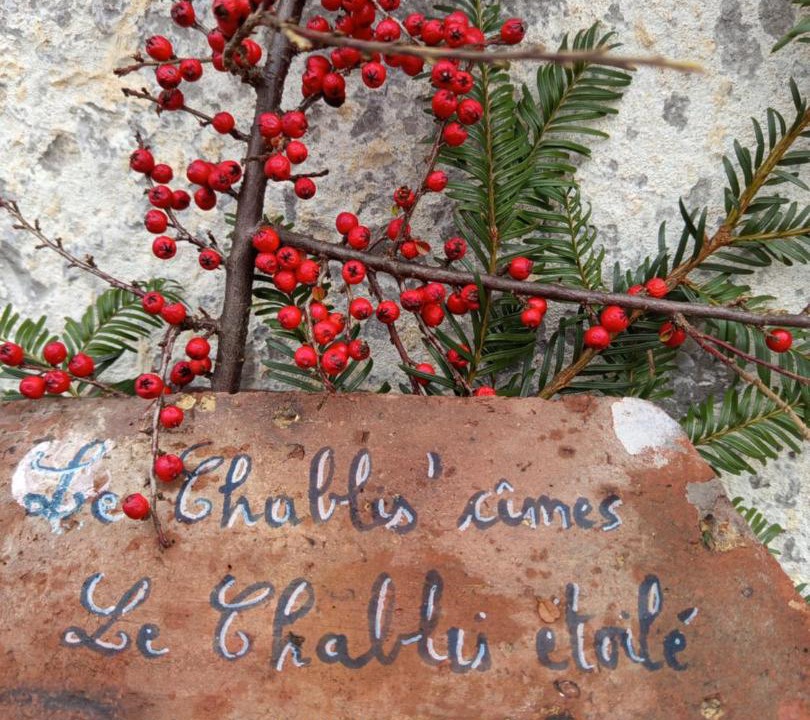 Le Chablis' cîmes
Le Chablis étoilé